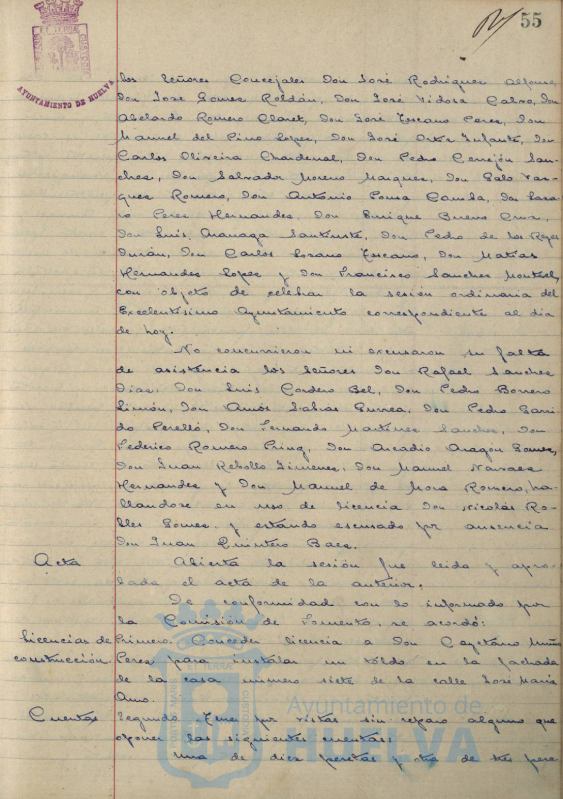 55
AYUNTAMIENTO DE HUELVA
los Señores Concejales Don José Rodriguez Alfonso,
Don José Gomez Roldán, Don José Vidosa Calvo, Don
Abelardo Romero Claret, Don José Toscano Perez, Don
Manuel del Pino Lopez, Don José Ortiz Infante, Don
Carlos Oliveira Chardenal, Don Pedro Cerrejón San-
chez, Don Salvador Moreno Marquez, Don Galo Vaz-
quez Romero, Don Antonio Pousa Camba, Don Laza-
ro Perez Hernandez, Don Enrique Bueno Cruz,
Don Luis Aranaga Santiuste, Don Pedro de los Reyes
Durán, Don Carlos Lozano Toscano, Don Matías
Hernandez Lopez y Don Francisco Sanchez Montiel,
con objeto de celebrar la sesión ordinaria del
Excelentísimo Ayuntamiento correspondiente al día
de hoy.
No concurrieron ni excusaron su falta
de asistencia los Señores Don Rafael Sanchez
Diaz, Don Luis Cordero Bel, Don Pedro Borrero
Limón, Don Amós Sabras Gurrea, Don Pedro Garri-
do Perelló, Don Fernando Martinez Sanchez, Don
Federico Romero Don Arcadio Aragón Gomez,
Don Juan Rebollo Jimenez, Don Manuel Narvaez
Hernandez y Don Manuel de Mora Romero, ha-
llandose en uso de licencia Don Nicolás Ro-
bles Gomez y estando escusado por ausencia
Don Juan Quintero Baez.
Acta
Abierta la sesión fue leida y apro-
bada el acta de la anterior.
De conformidad con lo informado por
la Comisión de Fomento, se acordó:
Licencias de
construcción.
Primero. Conceder licencia a Don Cayetano Muñoz
Perez para instalar un toldo en la fachada
de la casa número siete de la calle José Maria
Amo.
Cuentas
Segundo. Tener por vistas sin reparo alguno que
oponer las siguientes cuentas:
Una de diez pesetas y otra de tres pese
Ayuntamiento de
HUELVA